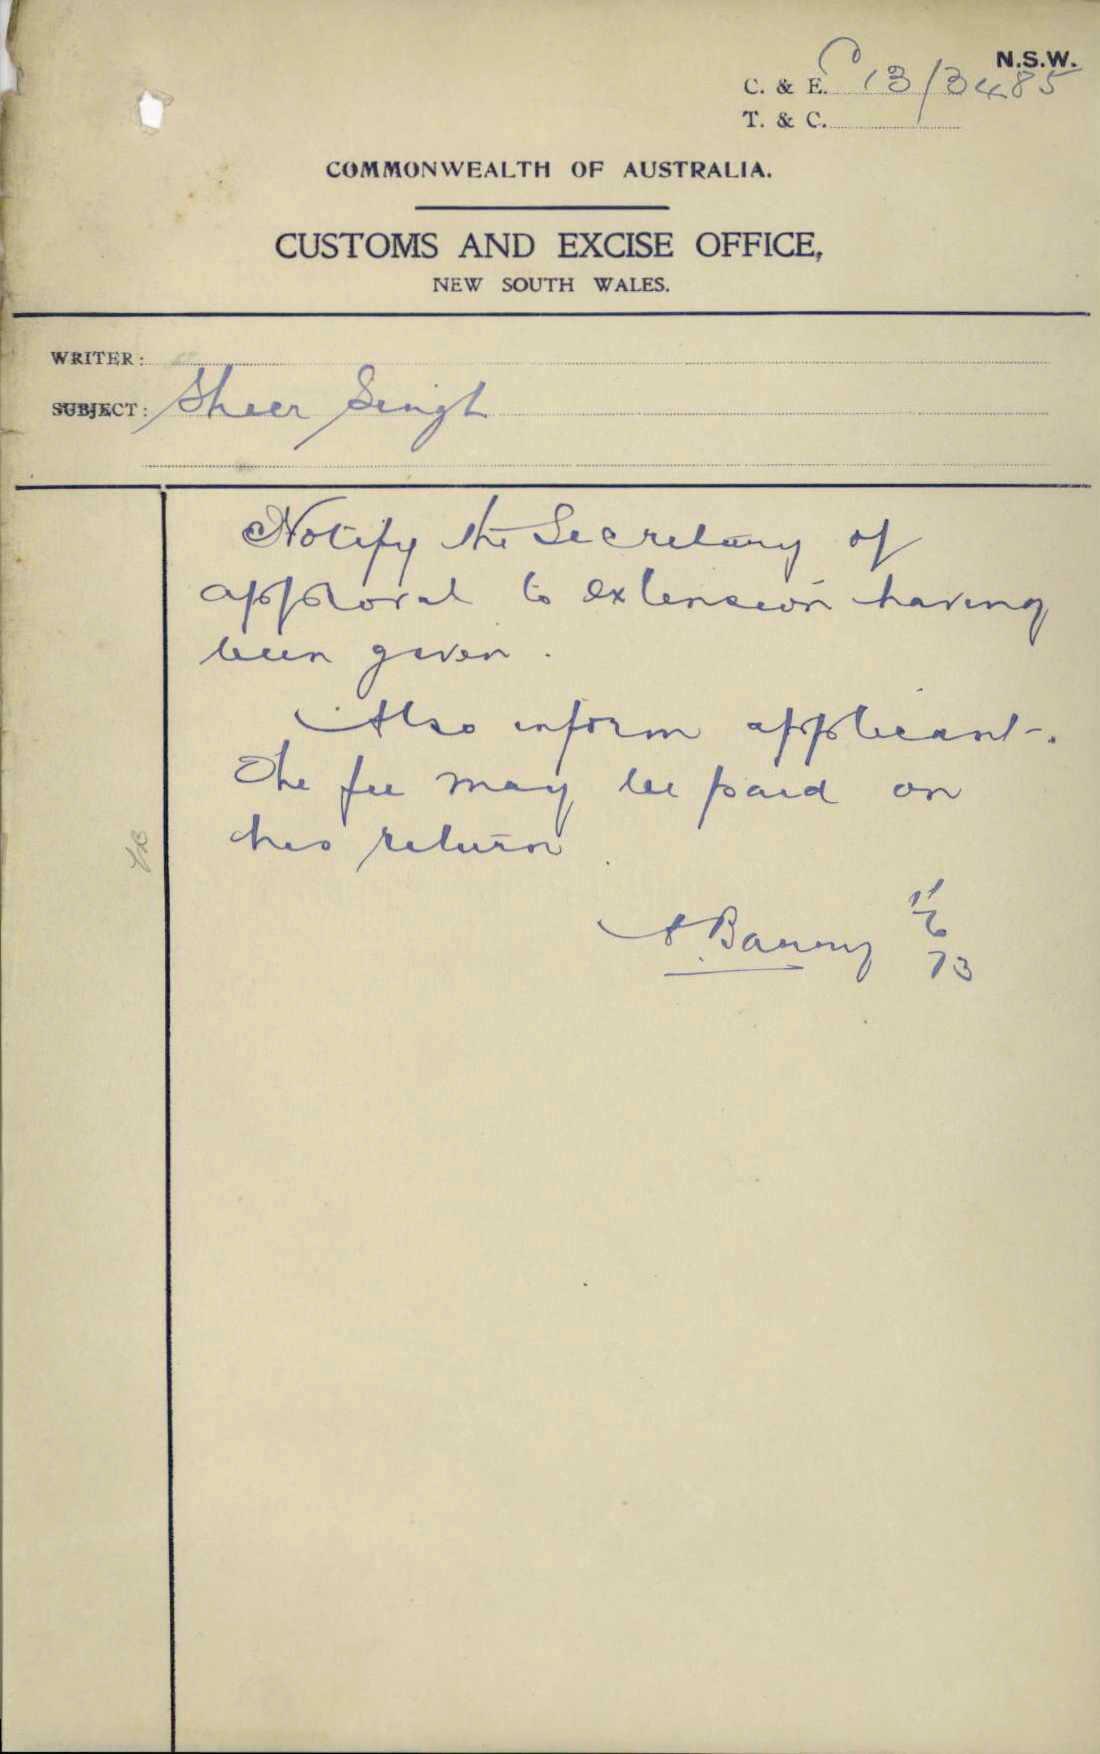 N.S.W.
C. & E. C 13/3485
T. & C.
COMMONWEALTH OF AUSTRALIA.
CUSTOMS AND EXCISE OFFICE,
NEW SOUTH WALES.
WRITER:
SUBJECT: Sheer Singh
Notify the Secretary of
approval to extension having
been given.
Also inform applicant.
The fee may be paid on
his return
11/6
13